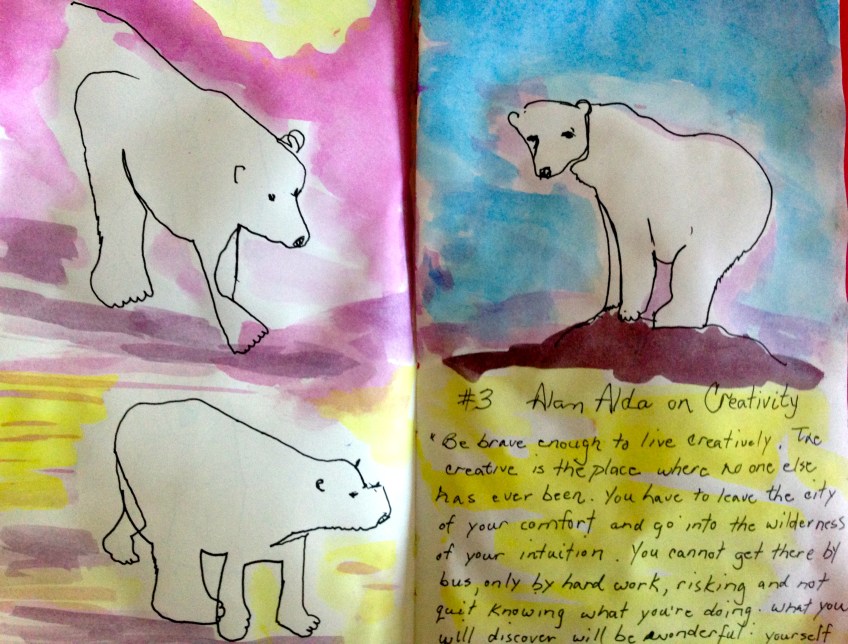 #3 Alan Alda on Creativity
"Be brave enough to live creatively. The
creative is the place where no one else
has ever been. You have to leave the city
of your comfort and go into the wilderness
of your intuition. You cannot get there by
bus, only by hard work, risking and not
quit knowing what you're doing. What you
will discover will be wonderful: yourself